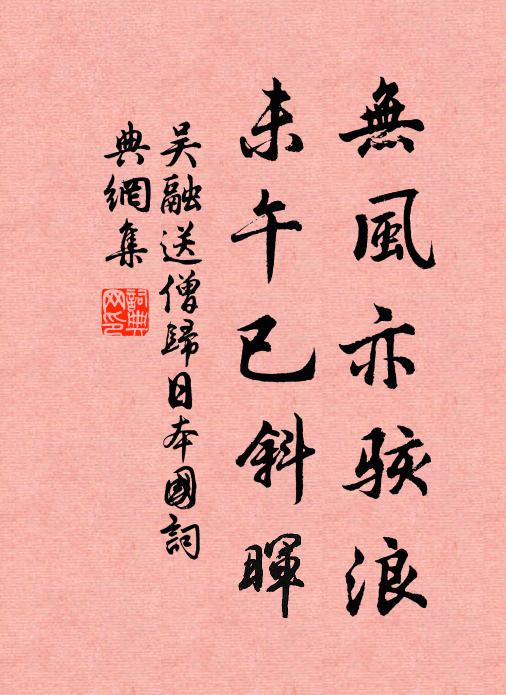 無風亦骇浪
未午已斜暉
吴融送僧歸日本國詞
典網集
詞典网印